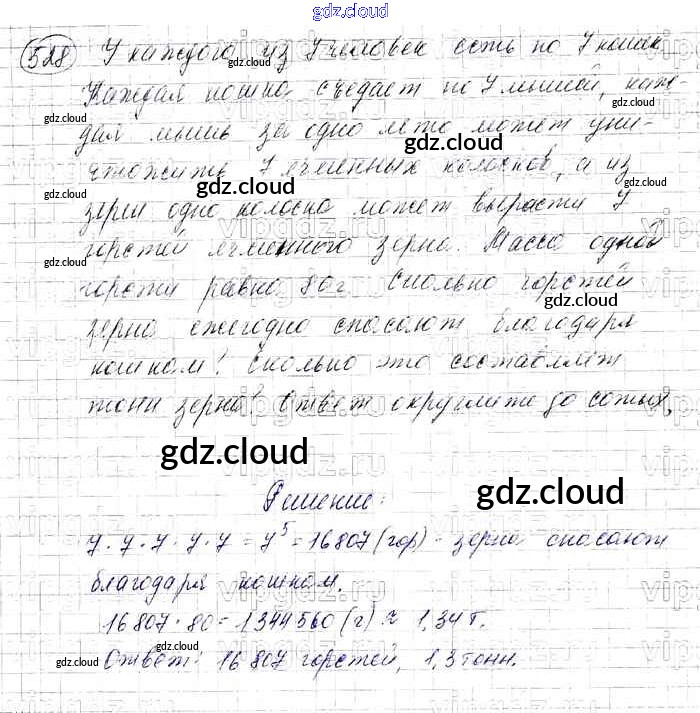 gdz.cloud
528 У каждого из 7 человек есть по 7 кошек.
Каждая кошка съедает по 7 мышей, каж-
дая мышь за одно лето может уни-
чтожить 7 ячменных колосков, а из
зерен одно колоска может вырасти 7
горстей ячменного зерна. Масса одной
горсти равна 80 г. Сколько горстей
зерна ежегодно спасают благодаря
кошкам? Сколько это составляет
тонн зерна? Ответ округлите до сотых.
gdz.cloud
Решение:
gdz.cloud
7 · 7 · 7 · 7 · 7 = 7⁵ = 16807 (гор) - зерна спасают
благодаря кошкам.
16807 · 80 = 1344560 (г) ≈ 1,34 т.
Ответ: 16807 горстей, 1,3 тонн.